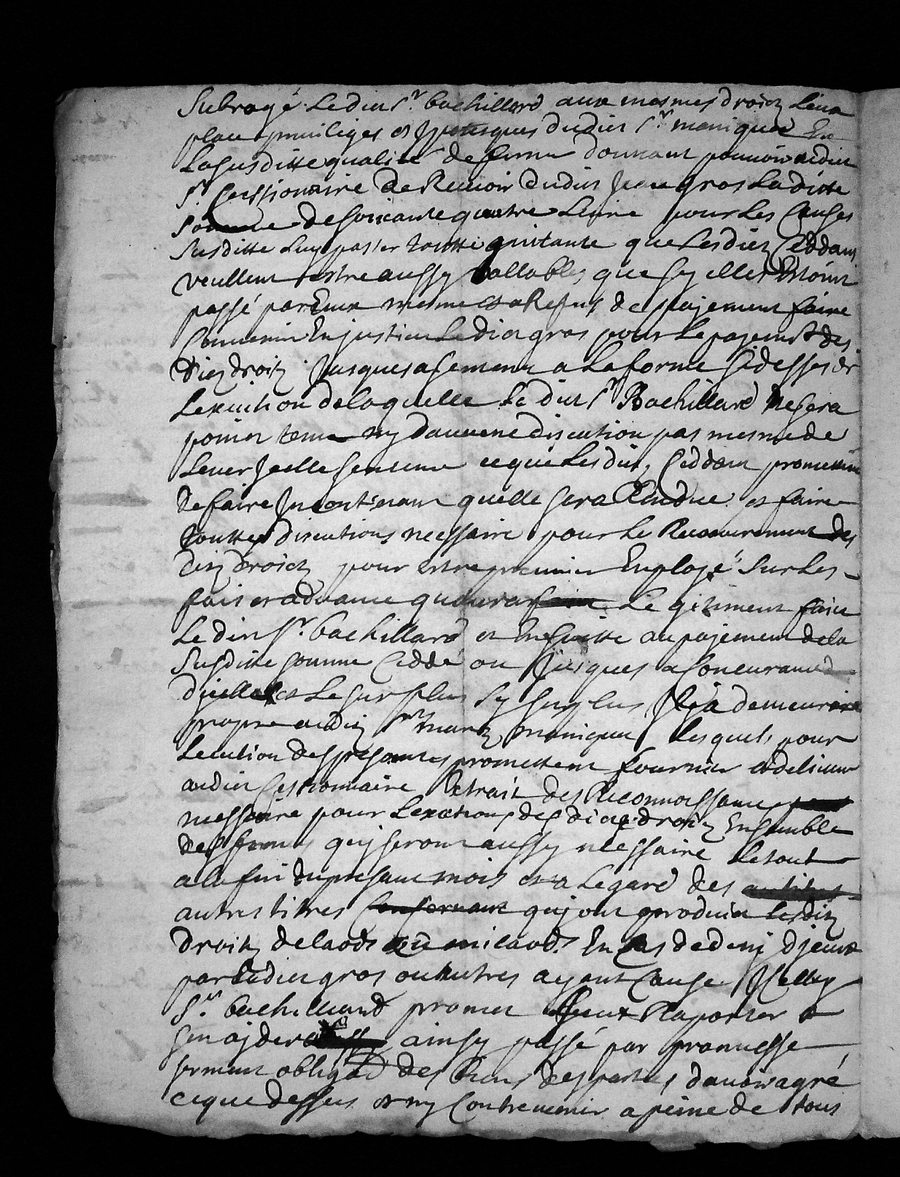 Subrogé Ledit Sr. bachillard aux mesmes droictz Lieu
place privilleges et ypoteques dudict Sr. monique En
La susditte qualité de ferme donnant pouvoir audit
Sr. Cessionaire De Recevoir dudit Jean gros La ditte
somme de soixante quatre Livre pour Les Causes
susditte Luy passer toutte quitante que Lesdits Ceddant
veullent estre aussy vallables que sy elles Estoint
passé par Eux mesme et a Refus de payement faire
Convenir En justice Ledict gros pour Le payement des
dicz droitz jusques a sentence a La forme
Lexecution de laquelle Ledit Sr. Bachillard ne sera
point tenu ny daucune discution pas mesme de
Lever Jcelle sentence ce que Lesdits Ceddant promettent
de faire Jncontinant quelle sera Rendue et faire
touttes discutions necessaire pour Le Recouvrement des
dicz droictz pour estre premier Employé sur Les
fait et advance quaura Le faire
Ledit Sr. bachillard et Ensuitte au payement de la
susditte somme Cedde ou jusques a Concurance
dicelle et Le surplus sy sen y a demeurera
propre audit Sr. monique Lesquels pour
Lecution des presantes promettent fournir et delivrer
audit Cessionaire Extrait des Reconnoissance
necessaire pour Lexaction desdict droitz Ensemble
des qui seront aussy necessaire Le tout
a la fin du presant mois et a Legard des
autres titres Conservant qui ont produit Lesditz
droitz de laods milaods En cas de deny dyceux
par Ledit gros ou autres ayant Cause Jcelluy
Sr. bachilliard promet Raporter
sen ayder ainsy passé par promesse
serment obligaon de biens des parties davoir agré
ce que dessus et ny Contrevenir a peine de tous